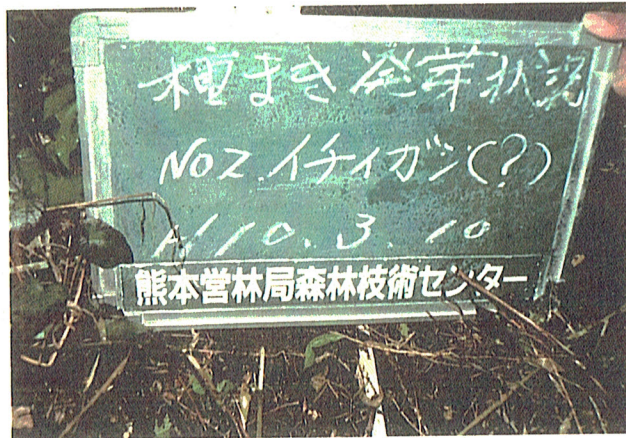 種まき発芽状況
No2.イチイガシ(?)
H10.3.10
熊本営林局森林技術センター